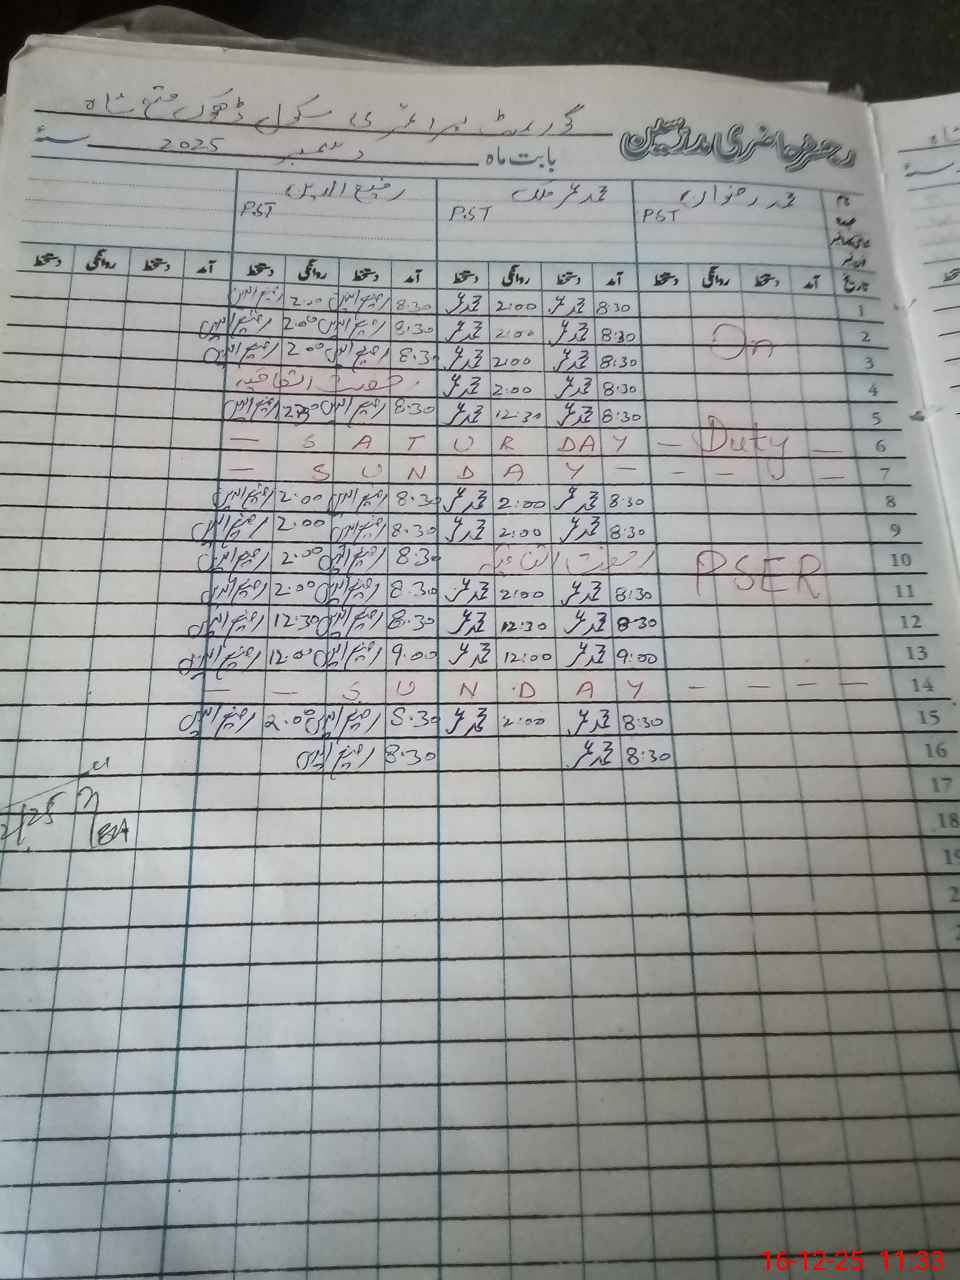 رجسٹر حاضری مدرسین
گورنمنٹ پرائمری سکول ڈھوک فتح شاہ
بابت ماہ دسمبر 2025 سنہ
نام محمد رضوان محمد عمر ملک رفیع الدین
عہدہ PST PST PST
تاریخ آمد دستخط روانگی دستخط آمد دستخط روانگی دستخط آمد دستخط روانگی دستخط آمد دستخط روانگی دستخط
1 8:30 محمد عمر 2:00 محمد عمر 8:30 رفیع الدین 2:00 رفیع الدین
2 On 8:30 محمد عمر 2:00 محمد عمر 8:30 رفیع الدین 2:00 رفیع الدین
3 8:30 محمد عمر 2:00 محمد عمر 8:30 رفیع الدین 2:00 رفیع الدین
4 8:30 محمد عمر 2:00 محمد عمر رخصت اتفاقیہ
5 8:30 محمد عمر 12:30 محمد عمر 8:30 رفیع الدین رفیع الدین
6 — S A T U R D A Y — Duty —
7 — S U N D A Y — — — — —
8 8:30 محمد عمر 2:00 محمد عمر 8:30 رفیع الدین 2:00 رفیع الدین
9 8:30 محمد عمر 2:00 محمد عمر 8:30 رفیع الدین 2:00 رفیع الدین
10 PSER رخصت اتفاقیہ 8:30 رفیع الدین 2:00 رفیع الدین
11 8:30 محمد عمر 2:00 محمد عمر 8:30 رفیع الدین 2:00 رفیع الدین
12 8:30 محمد عمر 12:30 محمد عمر 8:30 رفیع الدین 12:30 رفیع الدین
13 9:00 محمد عمر 12:00 محمد عمر 9:00 رفیع الدین 12:00 رفیع الدین
14 — — S U N D A Y — — — —
15 8:30 محمد عمر 2:00 محمد عمر 8:30 رفیع الدین 2:00 رفیع الدین
16 8:30 محمد عمر 8:30 رفیع الدین
17
18
16-12-25 11:33